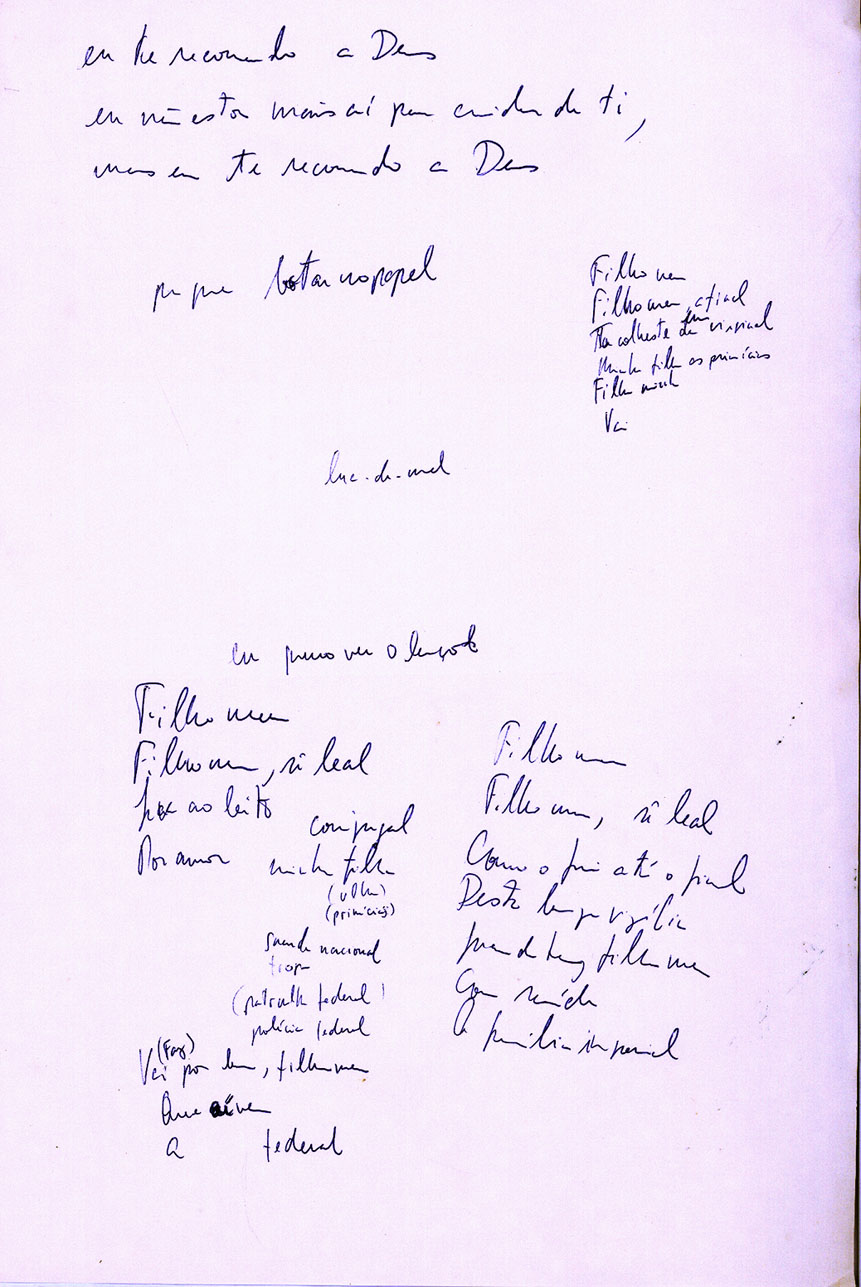 eu te recomendo a Deus
eu não estou mais aí para cuidar de ti,
mas eu te recomendo a Deus
por que botar no papel
Filho meu
Filho meu, afinal
colheste virginal
Minha filha as primícias
Filho meu
Vai
lua-de-mel
eu quero ver o lençol
Filho meu
Filho meu, sê leal
ao leito
conjugal
Por amor minha filha
(primícias)
guarda nacional
tropa
(patrulha federal)
polícia federal
(Faz)
Vai por bem, filho meu
Que aí vem
a federal
Filho meu
Filho meu, sê leal
Como o fui até o final
Desta longa vigília
filho meu
Com saúde
A família imperial